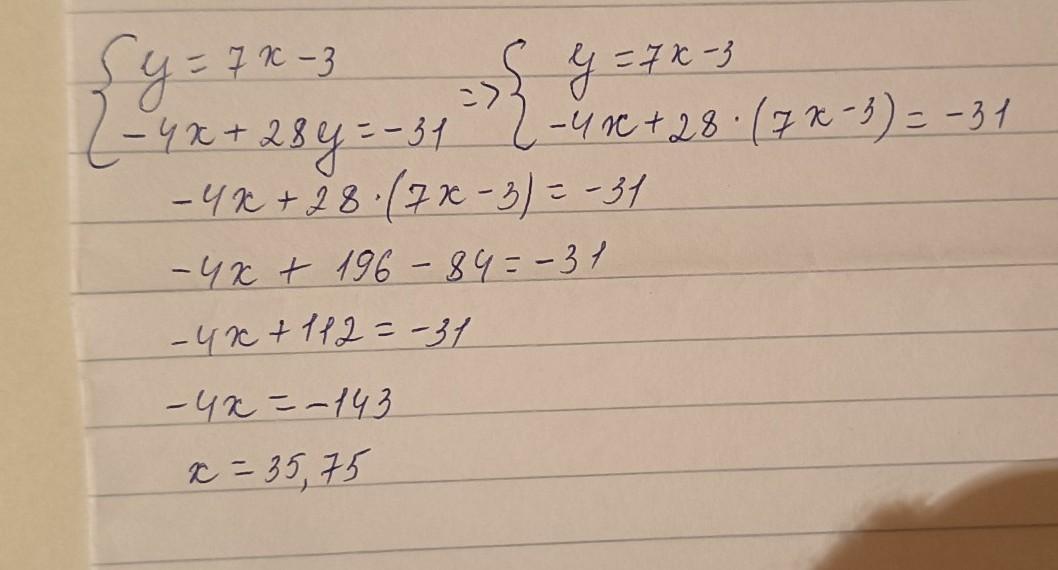 { y = 7x - 3 => { y = 7x - 3
-4x + 28y = -31 -4x + 28 · (7x - 3) = -31
-4x + 28 · (7x - 3) = -31
-4x + 196 - 84 = -31
-4x + 112 = -31
-4x = -143
x = 35,75